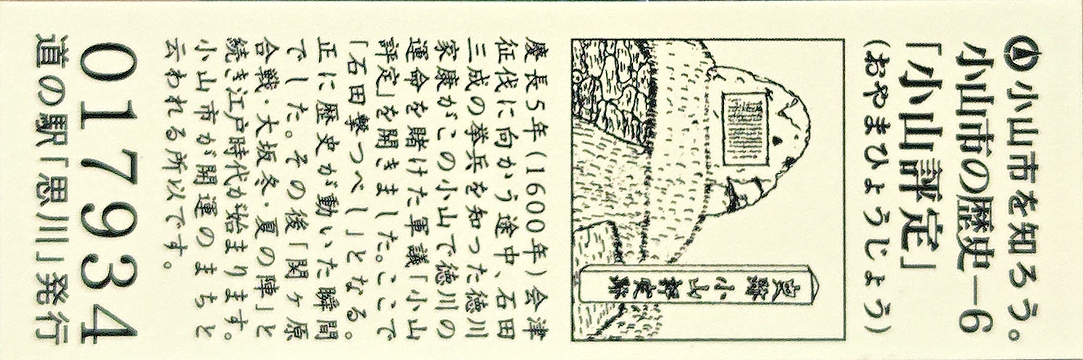 小山市を知ろう。
小山市の歴史−6
「小山評定」
(おやまひょうじょう)
史跡小山評定跡
慶長5年(1600年)会津
征伐に向かう途中、石田
三成の挙兵を知った徳川
家康がこの小山で徳川の
運命を賭けた軍議「小山
評定」を開きました。ここで
「石田撃つべし」となる。
正に歴史が動いた瞬間
でした。その後「関ヶ原
合戦・大坂冬・夏の陣」と
続き江戸時代が始まります。
小山市が開運のまちと
云われる所以です。
017934
道の駅「思川」発行